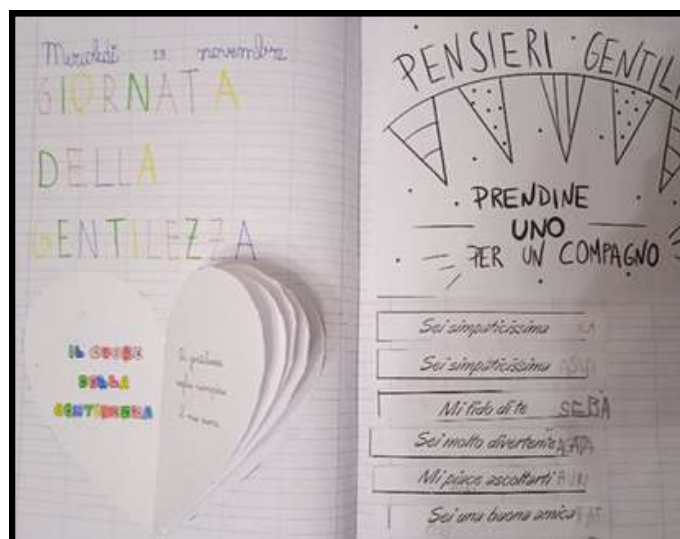 Mercoledì 13 novembre
GIORNATA
DELLA
GENTILEZZA
IL CUORE
DELLA
GENTILEZZA
Di gentilezza
voglio riempire
il mio cuore
PENSIERI GENTILI
PRENDINE
UNO
PER UN COMPAGNO
Sei simpaticissima
Sei simpaticissima ASIA
Mi fido di te SEBA
Sei molto divertente AGATA
Mi piace ascoltarti
Sei una buona amica